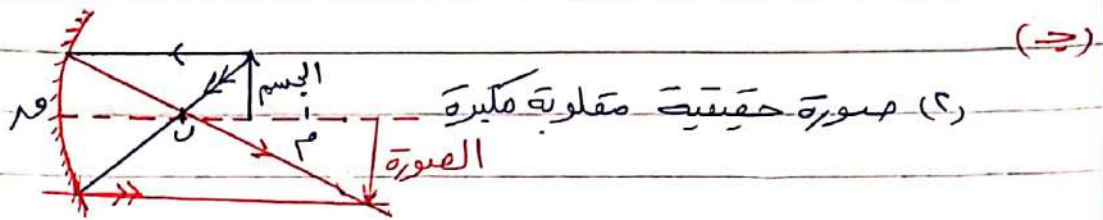 (جـ)
(٢) صورة حقيقية مقلوبة مكبرة
الجسم
م
ن
الصورة